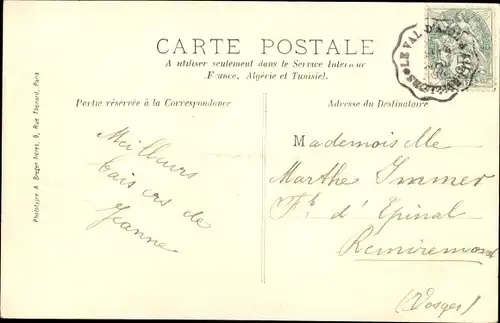 CARTE POSTALE
A utiliser seulement dans le Service Interieur
(France, Algérie et Tunisie).
Partie réservée à la Correspondance
Adresse du Destinataire
Meilleurs
baisers de
Jeanne
Mademoiselle
Marthe Immer
Fg d'Epinal
Remiremont
(Vosges)
Phototypie A. Breger Frères, 9, Rue Thénard, Paris
LE VAL-D'AJOL